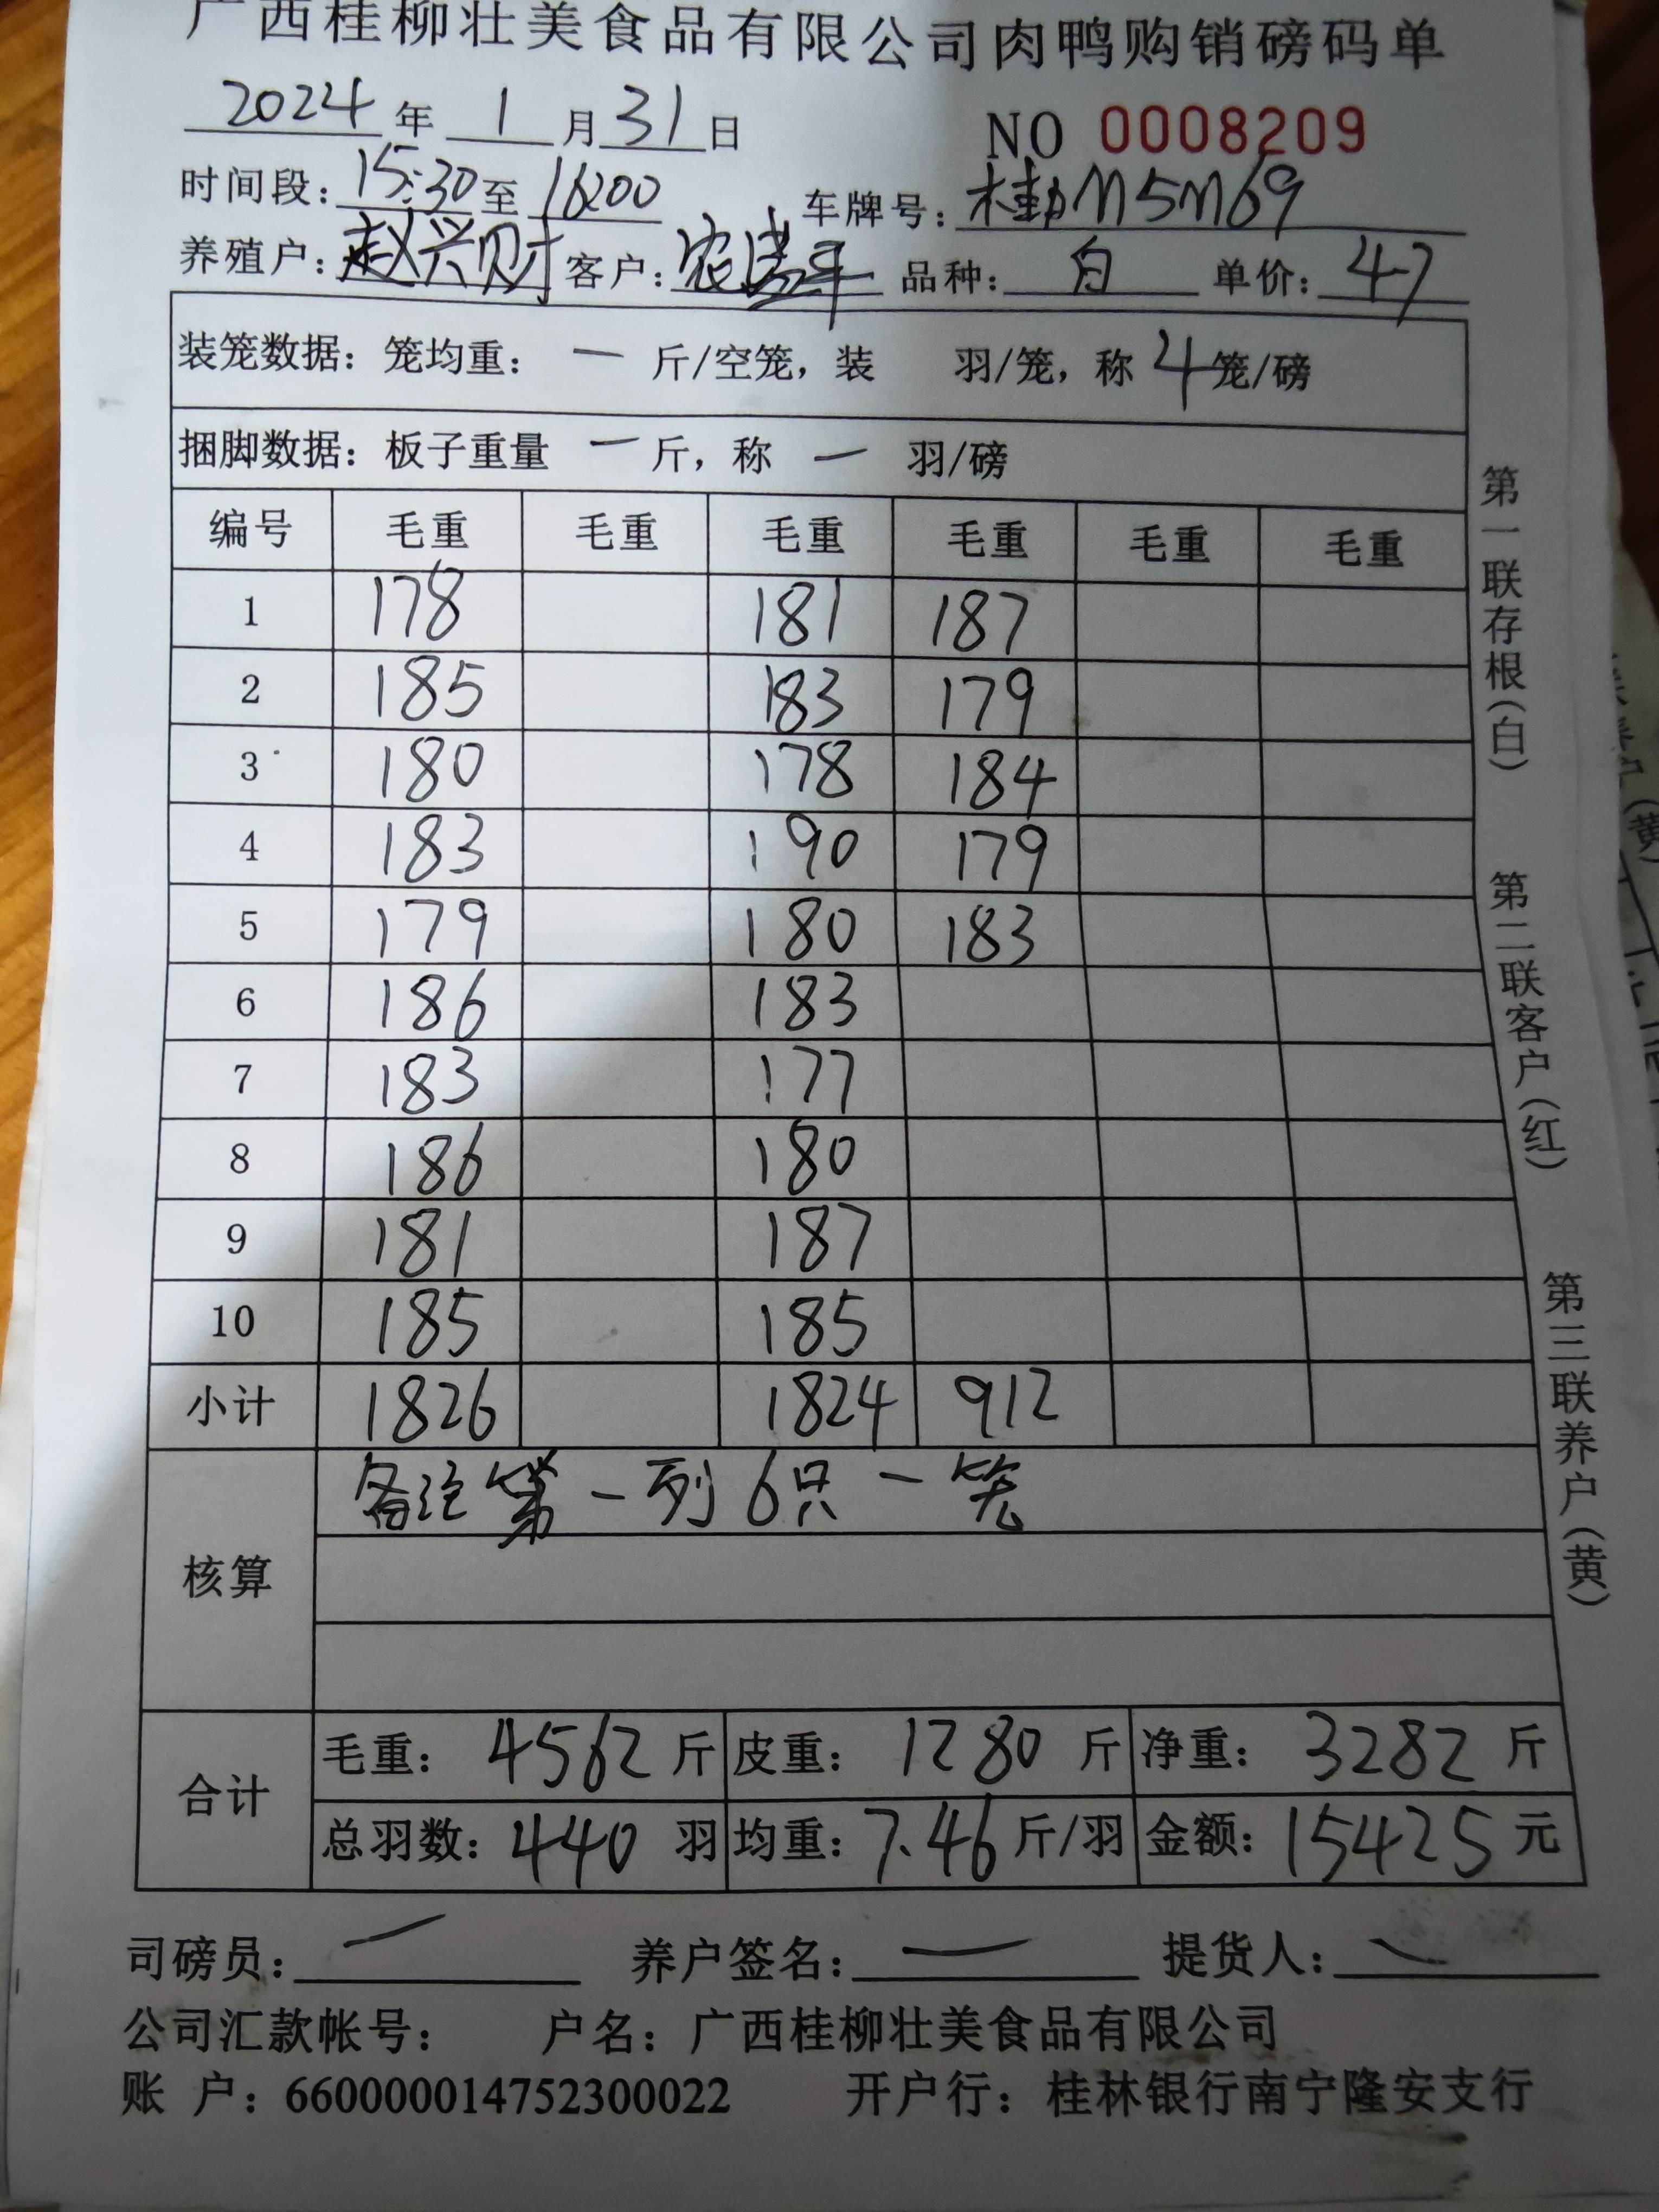 广西桂柳壮美食品有限公司肉鸭购销磅码单
2024年1月31日 NO 0008209
时间段：15:30至16:00 车牌号：桂 M5M69
养殖户：赵兴财 客户：农 平 品种：白 单价：4.7
装笼数据：笼均重：一斤/空笼，装 羽/笼，称4笼/磅
捆脚数据：板子重量 一 斤，称 一 羽/磅
编号 毛重 毛重 毛重 毛重 毛重 毛重
1 178 181 187
2 185 183 179
3 180 178 184
4 183 190 179
5 179 180 183
6 186 183
7 183 177
8 186 180
9 181 187
10 185 185
小计 1826 1824 912
备注第一列6只一笼
核算
合计
毛重：4562斤 皮重：1280斤 净重：3282斤
总羽数：440羽 均重：7.46斤/羽 金额：15425元
司磅员：一 养户签名：一 提货人：
公司汇款帐号： 户名：广西桂柳壮美食品有限公司
账 户：660000014752300022 开户行：桂林银行南宁隆安支行
第一联存根（白）
第二联客户（红）
第三联养户（黄）